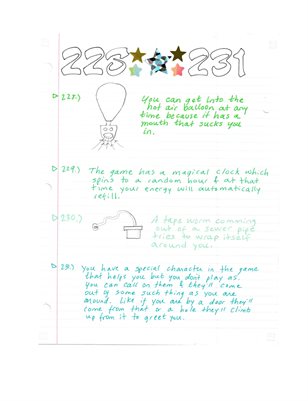 228 231
228.) You can get into the
hot air balloon at any
time because it has a
mouth that sucks you
in.
229.) The game has a magical clock which
spins to a random hour & at that
time your energy will automatically
refill.
230.) A tape worm comming
out of a sewer pipe
tries to wrap itself
around you.
231.) You have a special character in the game
that helps you but you don't play as.
You can call on them & they'll come
out of some such thing as you are
around. Like if you are by a door they'll
come from that or a hole they'll climb
up from it to greet you.